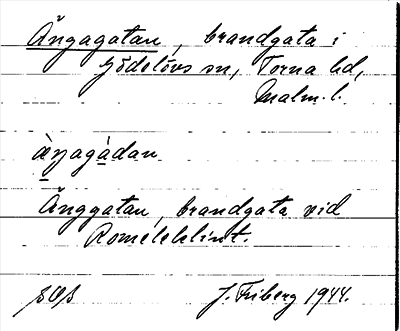 Ängagatan, brandgata i
Gödelövs sn, Torna hd,
Malm. l.
àŋagàdan
Änggatan, brandgata vid
Romeleklint.
J. Friberg 1944.